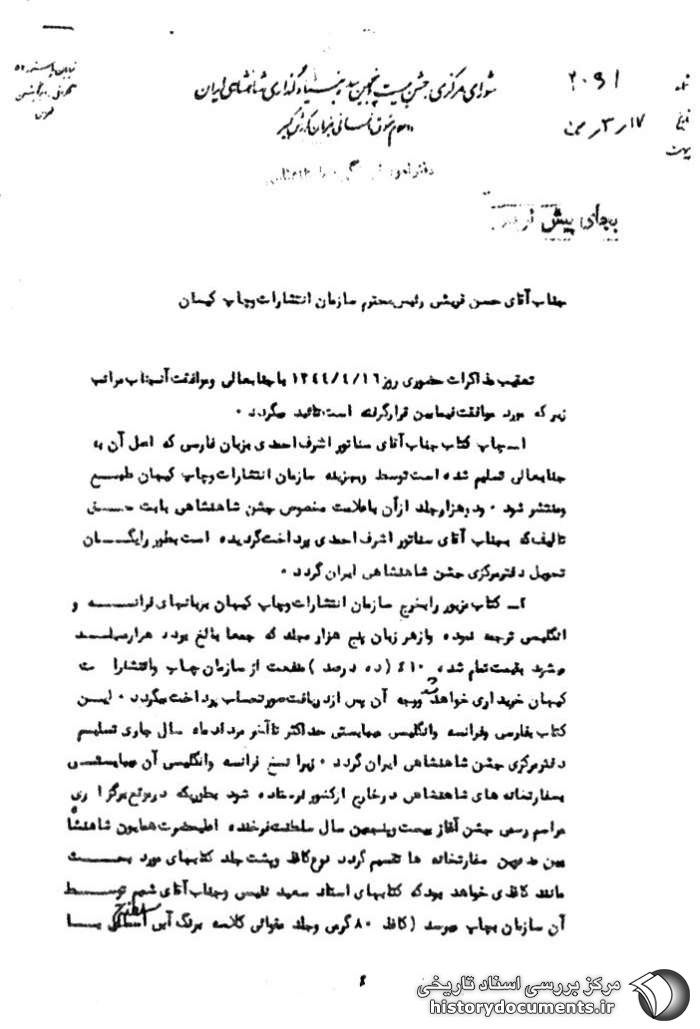 شماره ۲۰۹۱
تاریخ ۱۷ر۳ر
پیوست
شورای مرکزی جشن بیست و پنجمین سده بنیادگذاری شاهنشاهی ایران
کورش کبیر
دفتر امور
بجای پیش نویس
جناب آقای حسن قریشی رئیس محترم سازمان انتشارات وچاپ کیهان
تعقیب مذاکرات حضوری روز ۱۳۴۴/۴/۱۶ با جنابعالی وموافقت آنجناب مراتب
زیر که مورد موافقت فیمابین قرارگرفته است تائید میگردد ۰
۱ــ چاپ کتاب جناب آقای سناتور اشرف احمدی بزبان فارسی که اصل آن به
جنابعالی تسلیم شده است توسط وبهزینه سازمان انتشارات وچاپ کیهان طبع
ومنتشر شود ۰ ودوهزارجلد ازآن باعلامت مخصوص جشن شاهنشاهی بابت حق
تالیف که بجناب آقای سناتور اشرف احمدی پرداخت گردیده است بطور رایگان
تحویل دفترمرکزی جشن شاهنشاهی ایران گردد ۰
۲ــ کتاب مزبور رابخرج سازمان انتشارات وچاپ کیهان بزبانهای فرانسه و
انگلیسی ترجمه نموده وازهر زبان پنج هزار مجلد که جمعا بالغ بوده هزارمیلسد
میشود بقیمت تمام شده ۱۰٪ (ده درصد) منفعت از سازمان چاپ وانتشارات
کیهان خریداری خواهد شد ووجه آن پس ازدریافت صورتحساب پرداخت میگردد ۰ این
کتاب بفارسی وفرانسه وانگلیسی میبایستی حداکثر تاآخر مردادماه سال جاری تسلیم
دفترمرکزی جشن شاهنشاهی ایران گردد ۰ زیرا نسخ فرانسه وانگلیسی آن میبایستی
بسفارتخانه های شاهنشاهی درخارج ازکشور فرستاده شود بطوریکه درموقع برگزاری
مراسم رسمی جشن آغاز بیست وپنجمین سال سلطنت فرخنده اعلیحضرت همایون شاهنشاه
بین مدعوین سفارتخانه ها تقسیم گردد نوع کاغذ وپشت جلد کتابهای مورد بحث
مانند کاغذی خواهد بود که کتابهای استاد سعید نفیسی وجناب آقای شمیم توسط
آن سازمان بچاپ میرسد (کاغذ ۸۰ گرمی وجلد مقوائی گلاسه برنگ آبی با
۴
مرکز بررسی اسناد تاریخی
historydocuments.ir